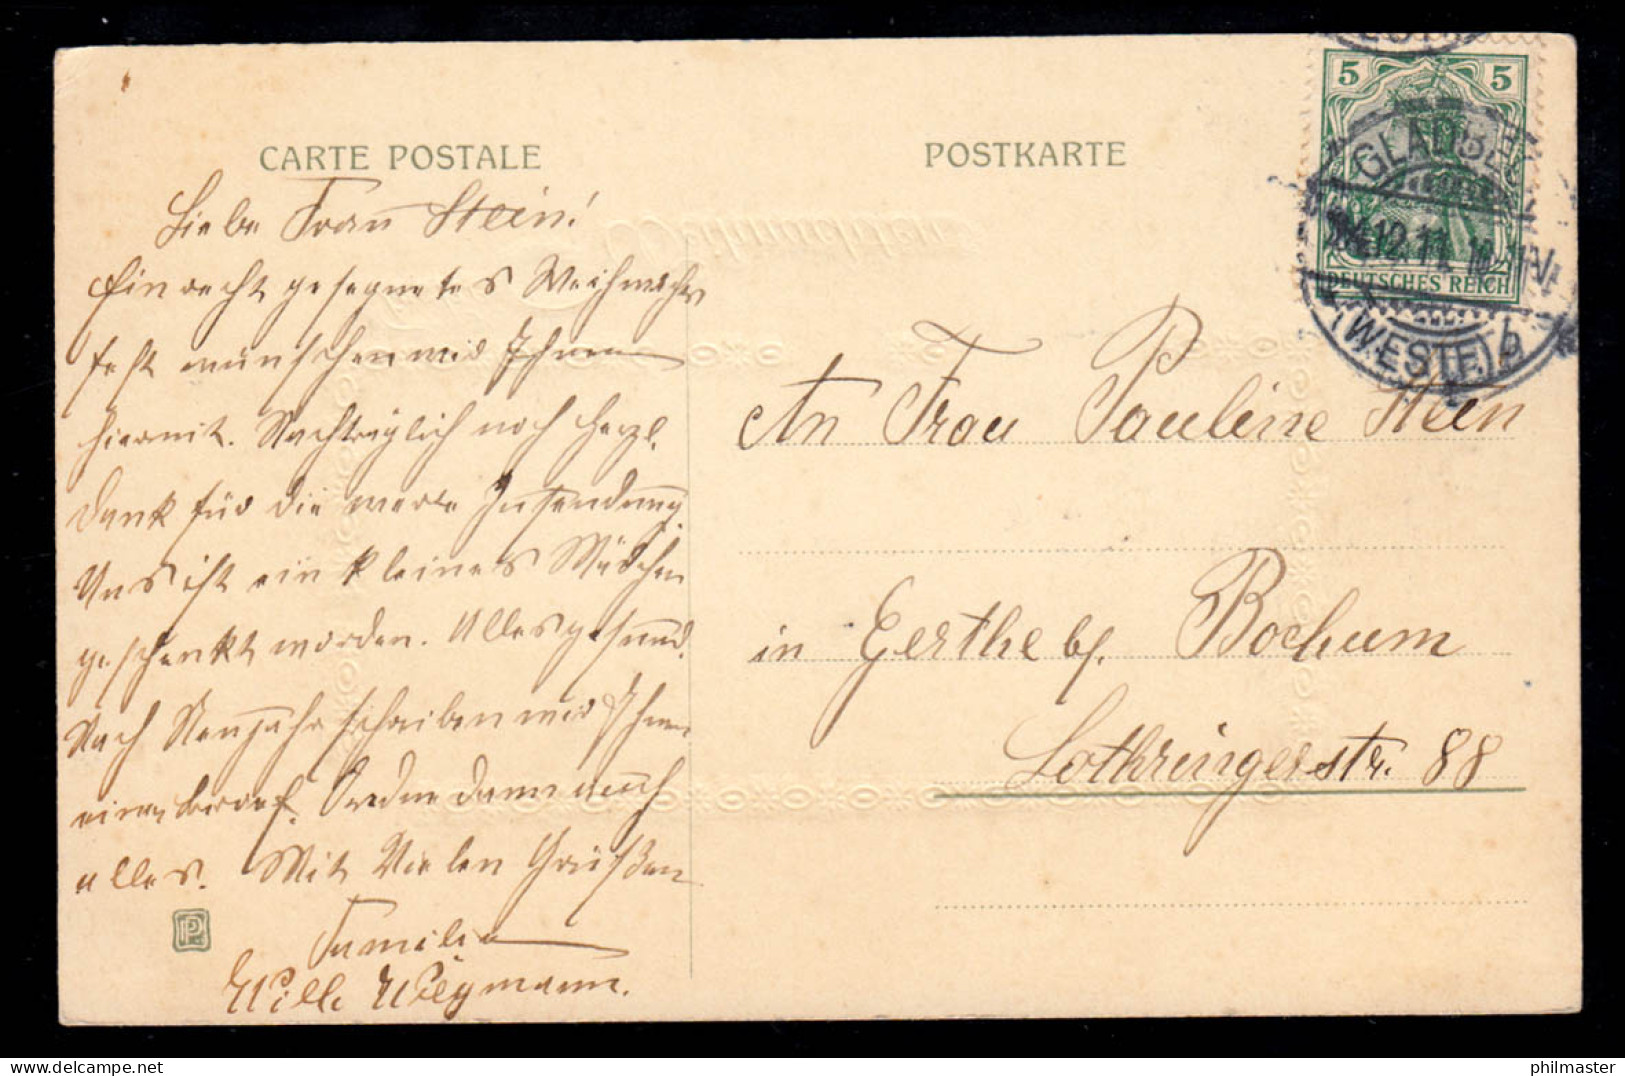 CARTE POSTALE
Liebe Frau Stein!
Ein recht gesegnetes Weihnachts
fest wünschen wir Ihnen
hiermit. Nachträglich noch herzl.
Dank für die werte Zusendung.
Uns ist ein kleines Mädchen
geschenkt worden. Alles gesund.
Nach Neujahr schreiben wir Ihnen
einen Brief. dann auch
alles. Mit Vielen Grüßen
Familie
Wilh. Wiegmann.
P
POSTKARTE
Weihnachten
5 5
DEUTSCHES REICH
GLADBE
12.11. 10-11V
(WESTF.) b
An Frau Pauline Stein
in Gerthe bf. Bochum
Lothringerstr. 88
philmaster